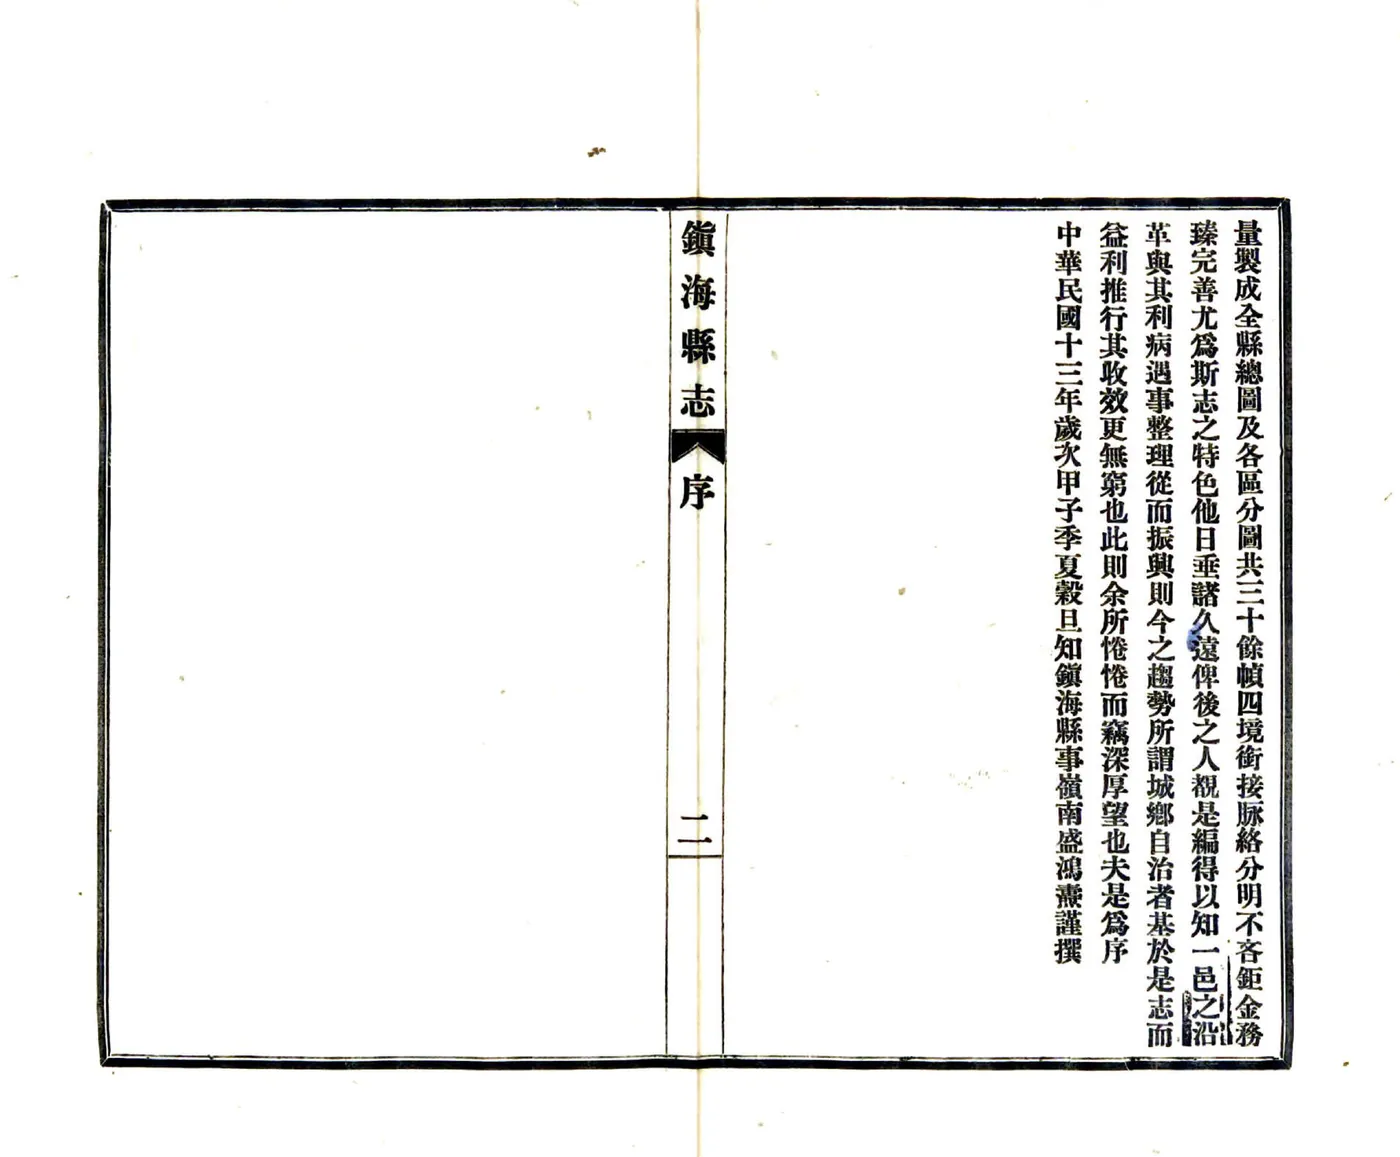 量製成全縣總圖及各區分圖共三十餘幀四境銜接脈絡分明不吝鉅金務
臻完善尤爲斯志之特色他日垂諸久遠俾後之人覩是編得以知一邑之沿
革與其利病遇事整理從而振興則今之趨勢所謂城鄉自治者基於是志而
益利推行其收效更無窮也此則余所惓惓而竊深厚望也夫是爲序
中華民國十三年歲次甲子季夏穀旦知鎭海縣事嶺南盛鴻燾謹撰
鎭海縣志
序
二